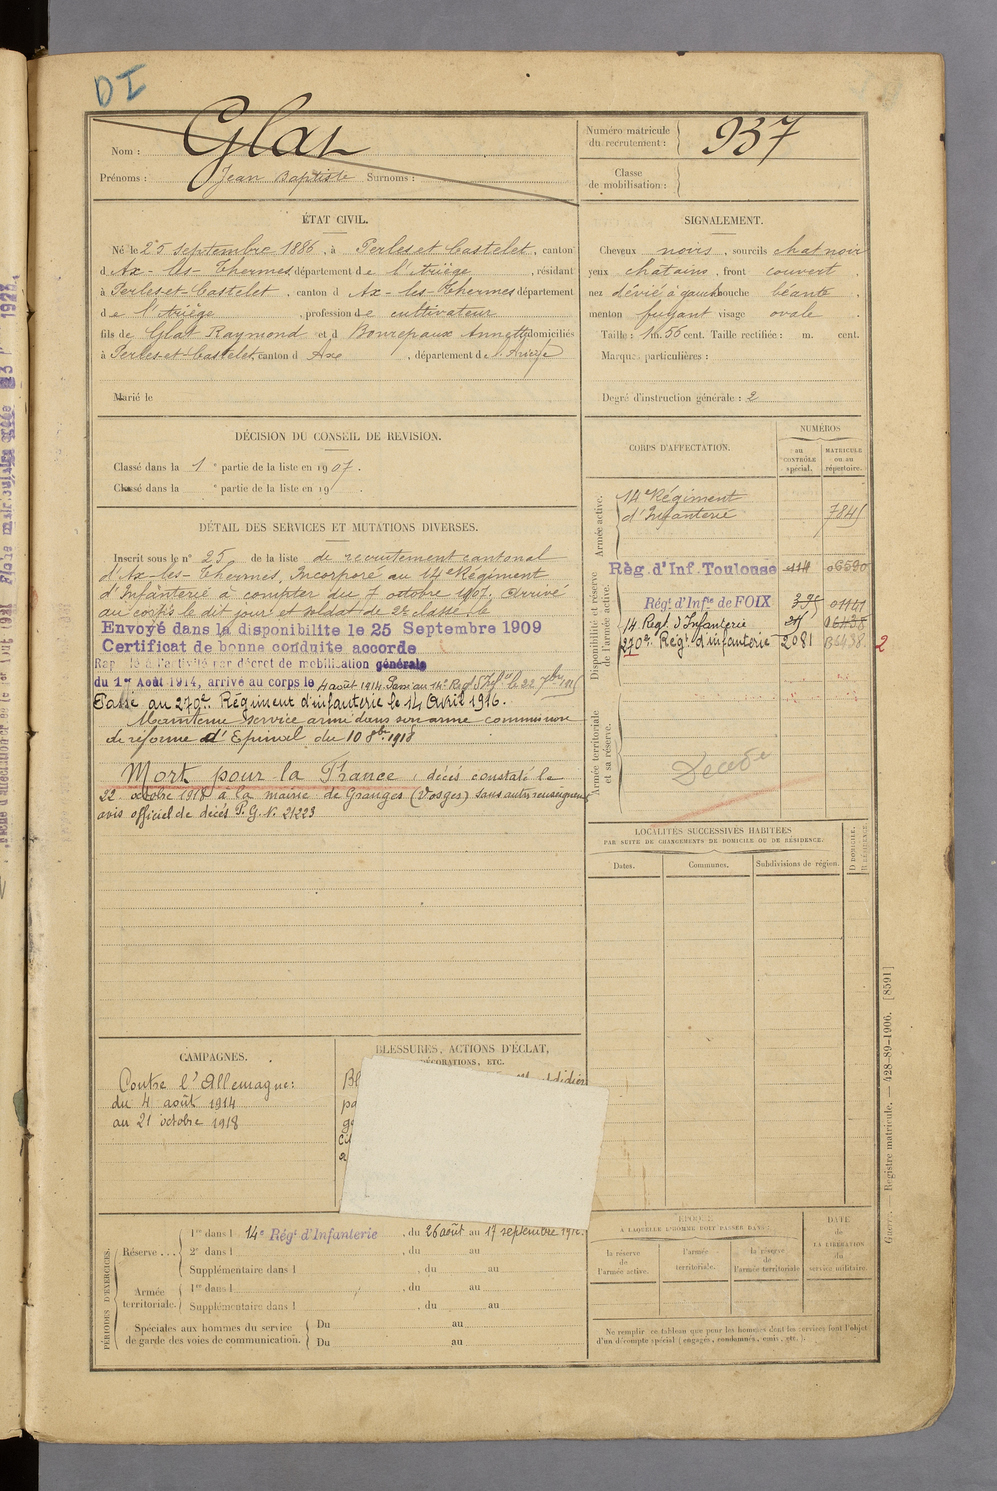 DI
Nom : Glat
Prénoms : Jean Baptiste Surnoms :
Numéro matricule
du recrutement : 937
Classe
de mobilisation :
ÉTAT CIVIL.
Né le 25 septembre 1886, à Perles et Castelet, canton
d'Ax-les-Thermes, département de l'Ariège, résidant
à Perles et Castelet, canton d Ax-les-Thermes département
de l'Ariège, profession de cultivateur
fils de Glat Raymond et d Bonrepaux Annette domiciliés
à Perles et Castelet, canton d Axe, département de l'Ariège
Marié le
SIGNALEMENT.
Cheveux noirs, sourcils chat noir
yeux chatains, front couvert
nez dévié à gauche bouche béante
menton fuyant visage ovale
Taille : 1 m. 56 cent. Taille rectifiée : m. cent.
Marques particulières :
Degré d'instruction générale : 2
DÉCISION DU CONSEIL DE REVISION.
Classé dans la 1e partie de la liste en 1907.
Classé dans la e partie de la liste en 19 .
DÉTAIL DES SERVICES ET MUTATIONS DIVERSES.
Inscrit sous le n° 25 de la liste de recrutement cantonal
d'Ax-les-Thermes, Incorporé au 14e Régiment
d'Infanterie à compter du 7 octobre 1907. Arrivé
au corps le dit jour et soldat de 2e classe le
Envoyé dans la disponibilite le 25 Septembre 1909
Certificat de bonne conduite accorde
Rappelé à l'activité par décret de mobilisation générale
du 1er Août 1914, arrivé au corps le 4 août 1914. Passé au 14e Regt d'Infie le 22 7bre 1915
Passé au 270e Régiment d'infanterie le 14 Avril 1916.
Maintenu service armé dans son arme commission
de réforme d'Epinal du 10 8bre 1918
Mort pour la France, décés constaté le
22 octobre 1918 à la mairie de Granges (Vosges) sans autre renseignemt
avis officiel de décés P.G.N. 21223
CORPS D'AFFECTATION.
NUMÉROS
au
CONTRÔLE
spécial.
MATRICULE
ou au
répertoire.
Armée active.
14e Régiment
d'Infanterie 7845
Disponibilité et réserve
de l'armée active.
Règ. d'Inf. Toulouse 114 06590
Régt d'Infie de FOIX 01141
14 Regt d'Infanterie
270e Regt d'infanterie 2081 2
Armée territoriale
et sa réserve.
Décédé
LOCALITÉS SUCCESSIVES HABITÉES
PAR SUITE DE CHANGEMENTS DE DOMICILE OU DE RÉSIDENCE.
Dates. Communes. Subdivisions de région. D DOMICILE. R RÉSIDENCE.
CAMPAGNES.
Contre l'Allemagne:
du 4 août 1914
au 21 octobre 1918
BLESSURES, ACTIONS D'ÉCLAT,
DÉCORATIONS, ETC.
PÉRIODES D'EXERCICES.
Réserve ... 1re dans l 14e Régt d'Infanterie, du 26 août au 17 septembre 1912.
2e dans l , du au
Supplémentaire dans l , du au
Armée
territoriale. 1re dans l , du au
Supplémentaire dans l , du au
Spéciales aux hommes du service
de garde des voies de communication.
Du au
Du au
ÉPOQUE
À LAQUELLE L'HOMME DOIT PASSER DANS :
la réserve
de
l'armée active.
l'armée
territoriale.
la réserve
de
l'armée territoriale
DATE
de
LA LIBÉRATION
du
service militaire.
Ne remplir ce tableau que pour les hommes dont les services font l'objet
d'un décompte spécial (engagés, condamnés, omis, etc.).
Guerre. Registre matricule. — 428-89-1906. [8591]